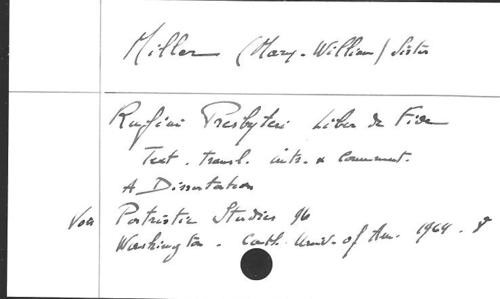 Miller (Mary-William) Sister
Rufini Presbyteri Liber de Fide
Text. transl. intr. & comment.
A Dissertation
Voir Patristic Studies 96
Washington. Cath. Univ. of Am. 1964. 8